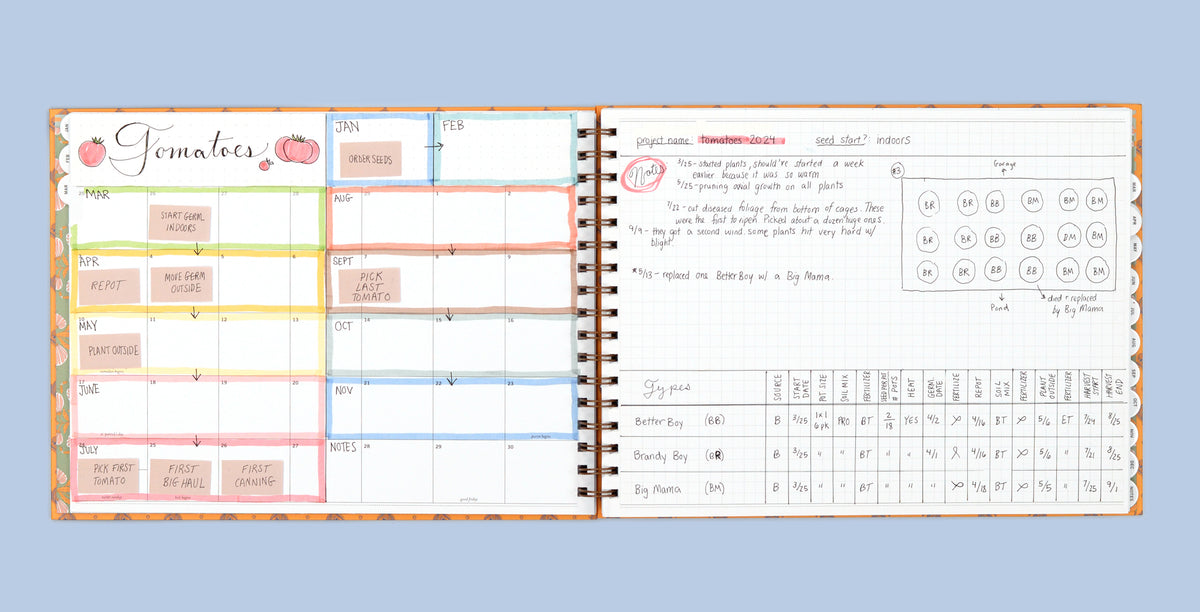 Tomatoes
JAN
ORDER SEEDS
FEB
MAR
START GERM.
INDOORS
APR
REPOT
MOVE GERM
OUTSIDE
MAY
PLANT OUTSIDE
JUNE
JULY
PICK FIRST
TOMATO
FIRST
BIG HAUL
FIRST
CANNING
AUG
SEPT
PICK
LAST
TOMATO
OCT
NOV
NOTES
project name: tomatoes 2024 seed start?: indoors
Notes
3/25 - started plants, should've started a week
earlier because it was so warm
5/25 - pruning axial growth on all plants
7/22 - cut diseased foliage from bottom of cages. These
were the first to ripen. Picked about a dozen huge ones.
9/9 - they got a second wind. some plants hit very hard w/
blight
*5/13 - replaced one Better Boy w/ a Big Mama.
#3
Garage
BR BR BB BM BM BM
BR BR BB BB BM BM
BR BR BB BB BM BM
Pond
died + replaced
by Big Mama
Types
SOURCE
START
DATE
POT SIZE
SOIL MIX
FERTILIZER
SEED PER POT
# POTS
HEAT
GERM.
DATE
FERTILIZE
REPOT
SOIL
MIX
FERTILIZER
PLANT
OUTSIDE
FERTILIZER
HARVEST
START
HARVEST
END
Better Boy (BB) B 3/25 1x1 6pk PRO BT 2/18 YES 4/2 4/16 BT 5/6 ET 7/24 8/25
Brandy Boy (BR) B 3/25 " " BT " " 4/1 4/16 BT 5/6 " 7/21 3/25
Big Mama (BM) B 3/25 " " BT " " " 4/18 BT 5/5 " 7/25 9/1
JAN
FEB
MAR
MAR
APR
MAY
JUN
JUL
AUG
SEP
OCT
NOV
DEC
NOTES